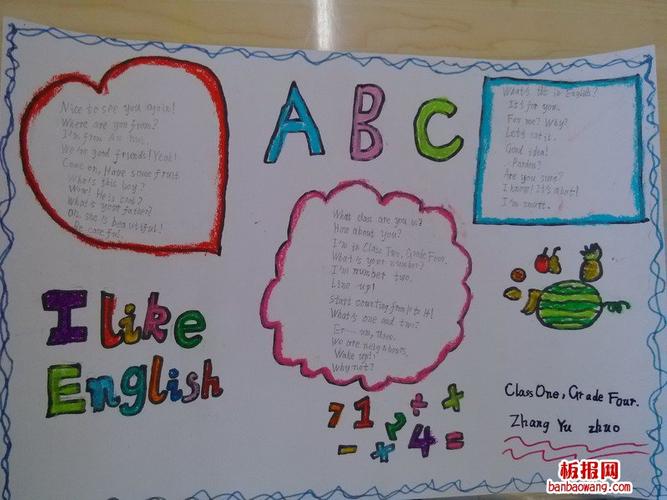 Nice to see you again!
Where are you from?
I'm from An hui.
We're good friends! Yeah!
Come on, Have some fruit
Who's this boy?
Wow! He is cool?
What's your father?
Oh, she is beautiful!
Be careful.
ABC
What's this in English?
It's for you.
For me? Why?
Let's eat it.
Good idea!
Pardon?
Are you sure?
I know! It's a
I'm smart.
What class are you in?
How about you?
I'm in Class Two, Grade Four.
What is your number?
I'm number two.
Line up!
Start counting from to
What's one and two?
Er— um, three.
We are neighbours.
Wake up!
Why not?
I like
English
7 1 2 ÷ ×
− + 4 =
Class One, Grade Four.
Zhang Yu zhuo
板报网
banbaowang.com